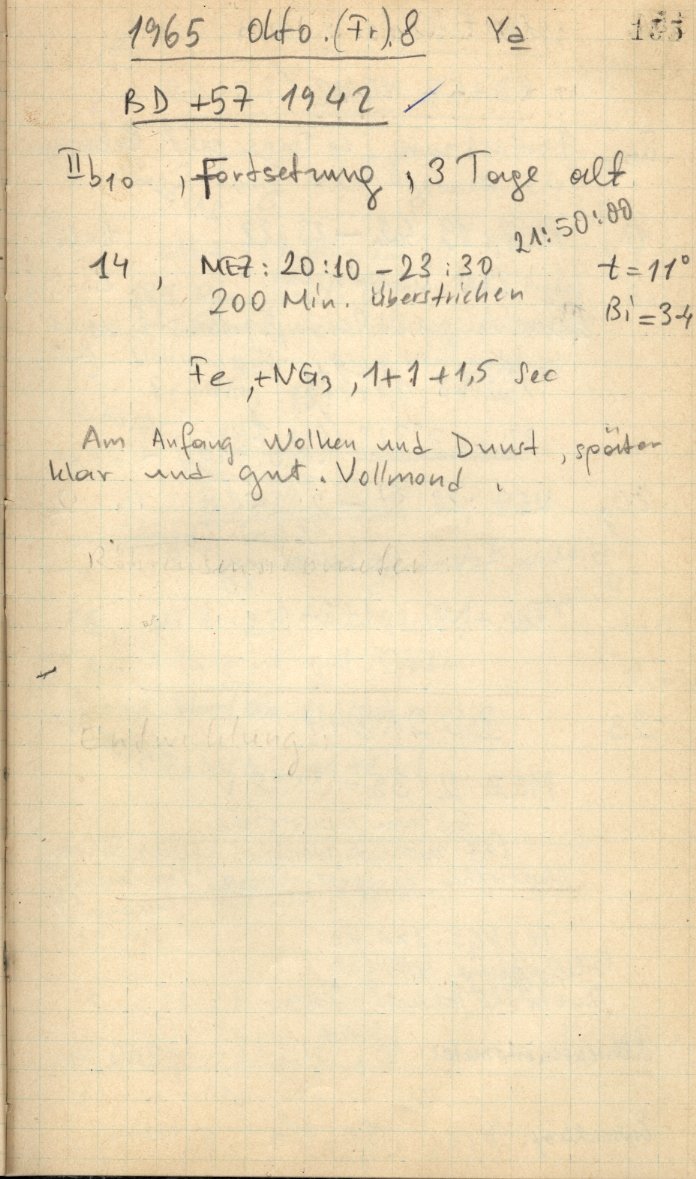 1965 Okto. (Fr). 8 Ya 155
BD +57 1942
IIb10 , Fortsetzung , 3 Tage alt
21:50:00
14 , MEZ: 20:10 – 23:30 t = 11°
200 Min. Überstrichen Bi = 3-4
Fe , +NG3 , 1+1+1,5 sec
Am Anfang Wolken und Dunst , später
klar und gut . Vollmond .
Entwicklung